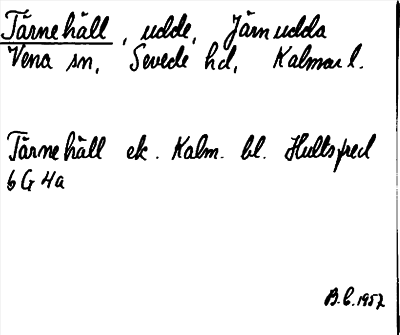 Tärnehäll, udde, Järnudda
Vena sn, Sevede hd, Kalmar l.
Tärnehäll ek. Kalm. bl. Hultsfred
6 G 4a
B.C. 1957